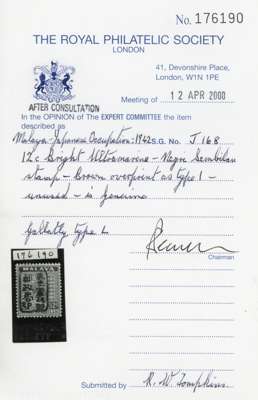 No. 176190
THE ROYAL PHILATELIC SOCIETY
LONDON
41, Devonshire Place,
London, W1N 1PE
AFTER CONSULTATION
Meeting of 12 APR 2000
In the OPINION of The EXPERT COMMITTEE the item
described as
Malaya - Japanese Occupation: 1942 S.G. No. J 168
12c Bright Ultramarine - Negri Sembilan
stamp - Brown overprint as type 1 -
unused - is genuine
Gallatly type L
Chairman
176 190
MALAYA
Submitted by R. W. Tompkins